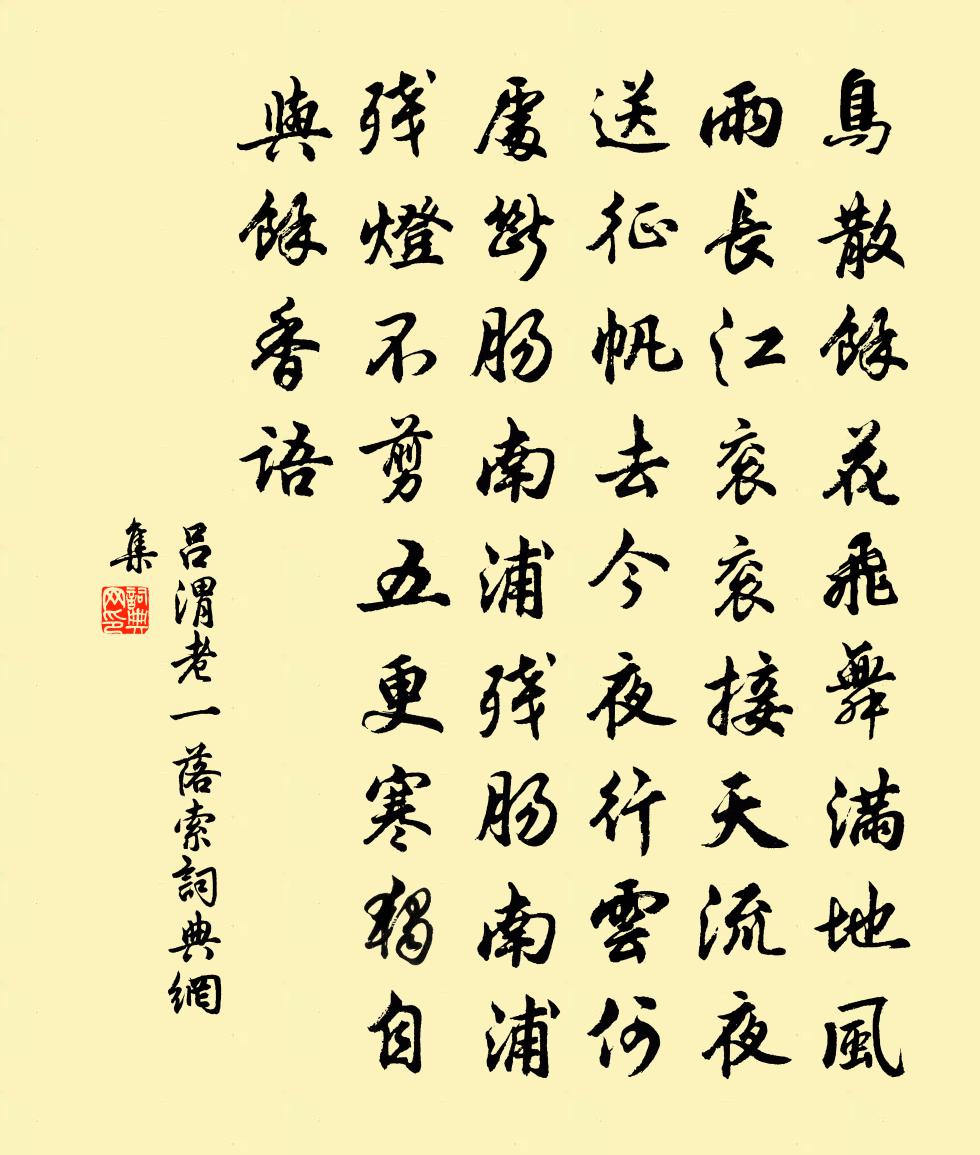 鳥散餘花飛舞滿地風
雨長江衮衮接天流夜
送征帆去今夜行雲何
處斷腸南浦残腸南浦
残燈不剪五更寒獨自
與餘香語
吕渭老一落索詞典網
集
詞典网印